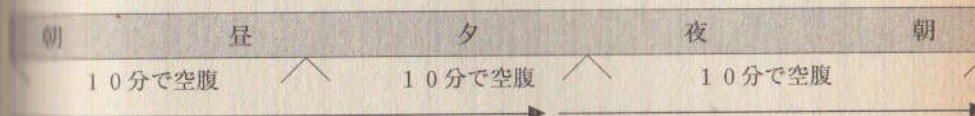 朝 昼 夕 夜 朝
10分で空腹 10分で空腹 10分で空腹